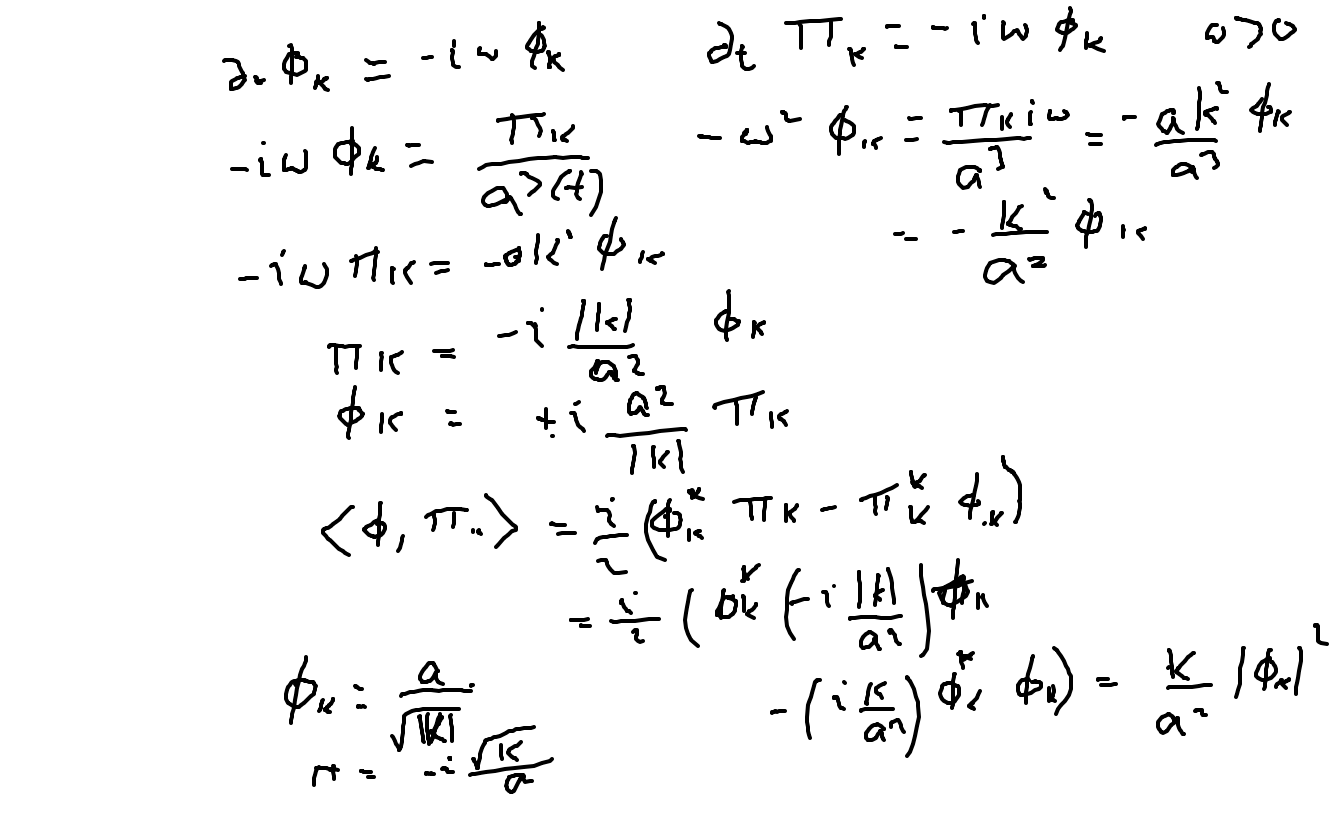 ∂ₜ ϕ_k = -i ω ϕ_k    ∂ₜ Π_k = -i ω ϕ_k    ω > 0
-i ω ϕ_k = Π_k / a³(t)    -ω² ϕ_k = Π_k i ω / a³ = - a k² / a³ ϕ_k
= - k² / a² ϕ_k
-i ω Π_k = -a k² ϕ_k
Π_k = -i |k| / a² ϕ_k
ϕ_k = +i a² / |k| Π_k
⟨ϕ, Π_k⟩ = i/2 (ϕ_k^* Π_k - Π_k^* ϕ_k)
= i/2 (ϕ_k^* (-i |k| / a²) ϕ_k
- (i k / a²) ϕ_k^* ϕ_k) = k / a² |ϕ_k|²
ϕ_k = a / √|k|
π = -i √k / a